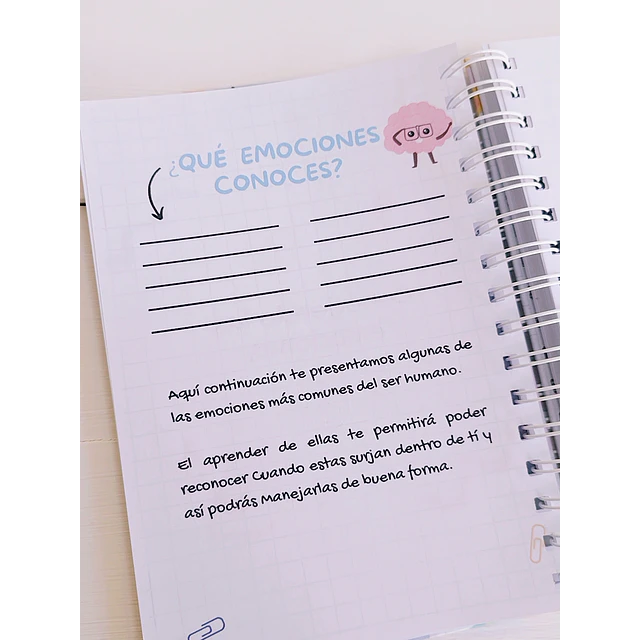 ¿QUÉ EMOCIONES
CONOCES?
Aquí continuación te presentamos algunas de
las emociones más comunes del ser humano.
El aprender de ellas te permitirá poder
reconocer cuando estas surjan dentro de tí y
así podrás manejarlas de buena forma.